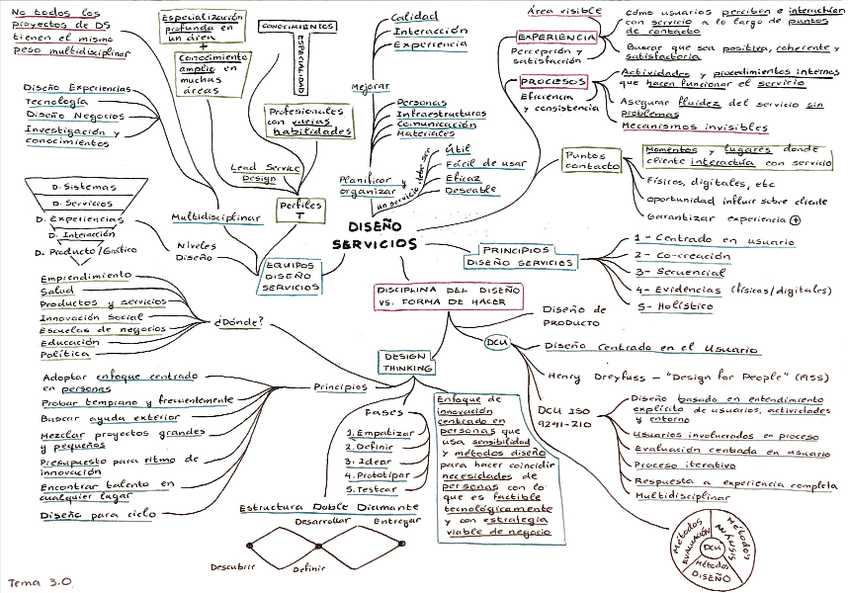 No todos los
proyectos de DS
tienen el mismo
peso multidisciplinar
Especialización
profunda en
un área
+
Conocimiento
amplio en
muchas
áreas
CONOCIMIENTOS
ESPECIALIDAD
Profesionales
con varias
habilidades
Lead Service
Design
Perfiles
T
Diseño Experiencias
Tecnología
Diseño Negocios
Investigación y
conocimientos
Multidisciplinar
D. Sistemas
D. Servicios
D. Experiencias
D. Interacción
D. Producto/Gráfico
Niveles
Diseño
EQUIPOS
DISEÑO
SERVICIOS
Calidad
Interacción
Experiencia
Mejorar
Personas
Infraestructuras
Comunicación
Materiales
Planificar y
organizar
un servicio debe ser
Útil
Fácil de usar
Eficaz
Deseable
DISEÑO
SERVICIOS
Área visible
EXPERIENCIA
Percepción y
satisfacción
cómo usuarios perciben e interactúan
con servicio a lo largo de puntos
de contacto
Buscar que sea positiva, coherente y
satisfactoria
PROCESOS
Eficiencia
y consistencia
Actividades y procedimientos internos
que hacen funcionar el servicio
Asegurar fluidez del servicio sin
problemas
Mecanismos invisibles
Puntos
contacto
Momentos y lugares donde
cliente interactúa con servicio
Físicos, digitales, etc
oportunidad influir sobre cliente
Garantizar experiencia +
PRINCIPIOS
DISEÑO SERVICIOS
1- Centrado en usuario
2- Co-creación
3- Secuencial
4- Evidencias (físicas/digitales)
5- Holístico
DISCIPLINA DEL DISEÑO
VS. FORMA DE HACER
Diseño de
PRODUCTO
DCU
Diseño Centrado en el Usuario
Henry Dreyfuss - "Design for People" (1955)
DCU ISO
9241-210
Diseño basado en entendimiento
explícito de usuarios, actividades
y entorno
Usuarios involucrados en proceso
Evaluación centrada en usuario
Proceso iterativo
Respuesta a experiencia completa
Multidisciplinar
Métodos
EVALUACIÓN
Métodos
ANÁLISIS
DCU
Métodos
DISEÑO
DESIGN
THINKING
Emprendimiento
Salud
Productos y servicios
Innovación social
Escuelas de negocios
Educación
Política
¿Dónde?
Principios
Adoptar enfoque centrado
en personas
Probar temprano y frecuentemente
Buscar ayuda exterior
Mezclar proyectos grandes
y pequeños
Presupuesto para ritmo de
innovación
Encontrar talento en
cualquier lugar
Diseño para ciclo
Fases
1. Empatizar
2. Definir
3. Idear
4. Prototipar
5. Testear
Enfoque de
innovación
centrado en
personas que
usa sensibilidad
y métodos diseño
para hacer coincidir
necesidades de
personas con lo
que es factible
tecnológicamente
y con estrategia
viable de negocio
Estructura Doble Diamante
Desarrollar
Entregar
Descubrir
Definir
Tema 3.0